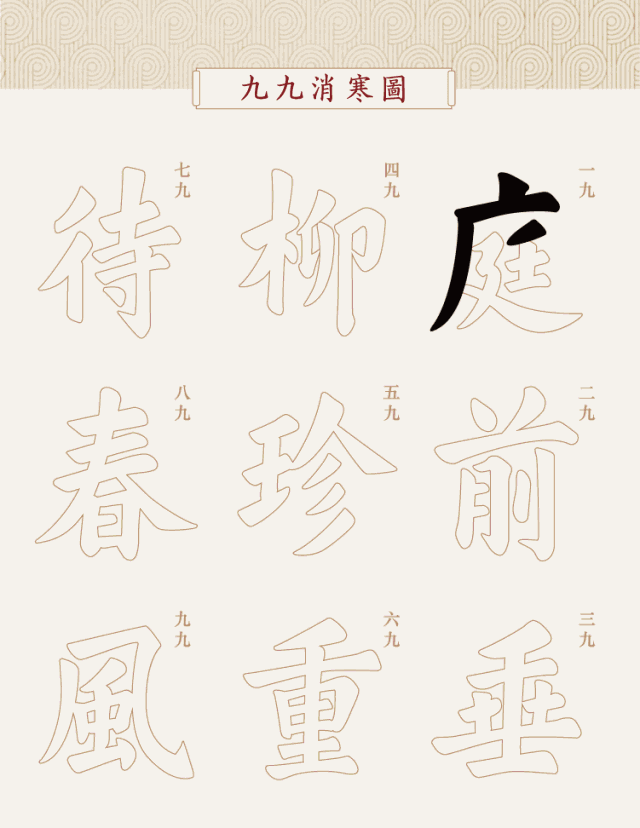 九九消寒圖
一九
庭
二九
前
三九
垂
四九
柳
五九
珍
六九
重
七九
待
八九
春
九九
風